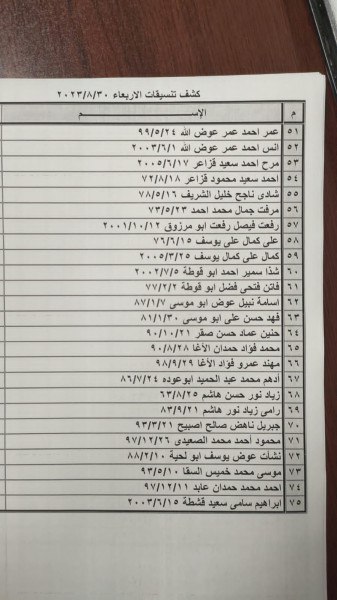 كشف تنسيقات الاربعاء ٢٠٢٣/٨/٣٠
م الإســـــــم
٥١ عمر احمد عمر عوض الله ٩٩/٥/٢٤
٥٢ انس احمد عمر عوض الله ٢٠٠٣/٦/١
٥٣ مرح احمد سعيد قزاعر ٢٠٠٥/٦/١٧
٥٤ احمد سعيد محمود قزاعر ٧٢/٨/١٨
٥٥ شادى ناجح خليل الشريف ٧٨/٥/١٦
٥٦ مرفت جمال محمد احمد ٧٣/٥/٢٣
٥٧ رفعت فيصل رفعت ابو مرزوق ٢٠٠١/١٠/١٢
٥٨ على كمال على يوسف ٧٦/٦/١٥
٥٩ كمال على كمال يوسف ٢٠٠٥/٣/٢٥
٦٠ شذا سمير احمد ابو فوطة ٢٠٠٢/٧/٥
٦١ فاتن فتحى فضل ابو قوطة ٧٧/٢/٢
٦٢ اسامة نبيل عوض ابو موسى ٨٧/١/٧
٦٣ فهد حسن على ابو موسى ٨١/١/٣٠
٦٤ حنين عماد حسن صقر ٩٠/١٠/٢١
٦٥ محمد فؤاد حمدان الأغا ٩٠/٨/٢٨
٦٦ مهند عمرو فؤاد الأغا ٩٨/٩/٢٩
٦٧ أدهم محمد عبد الحميد ابوعوده ٨٦/٧/٢٤
٦٨ زياد نور حسن هاشم ٦٣/٨/٢٥
٦٩ رامى زياد نور هاشم ٨٣/٩/٢١
٧٠ جبريل ناهض صالح اصبيح ٩٣/٣/٢١
٧١ محمود أحمد محمد الصعيدى ٩٧/١٢/٢٦
٧٢ نشأت عوض يوسف ابو لحية ٨٨/٢/١٠
٧٣ موسى محمد خميس السقا ٩٣/٥/١٠
٧٤ احمد محمد حمدان عابد ٩٧/١٢/١١
٧٥ ابراهيم سامى سعيد قشطة ٢٠٠٣/٦/١٥